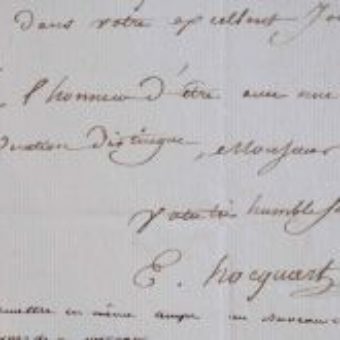 dans votre excellent Jou
l'honneur d'être avec une
distingué, Monsieur
votre très humble S
E. hocquart
mettre en même temps un nouveau